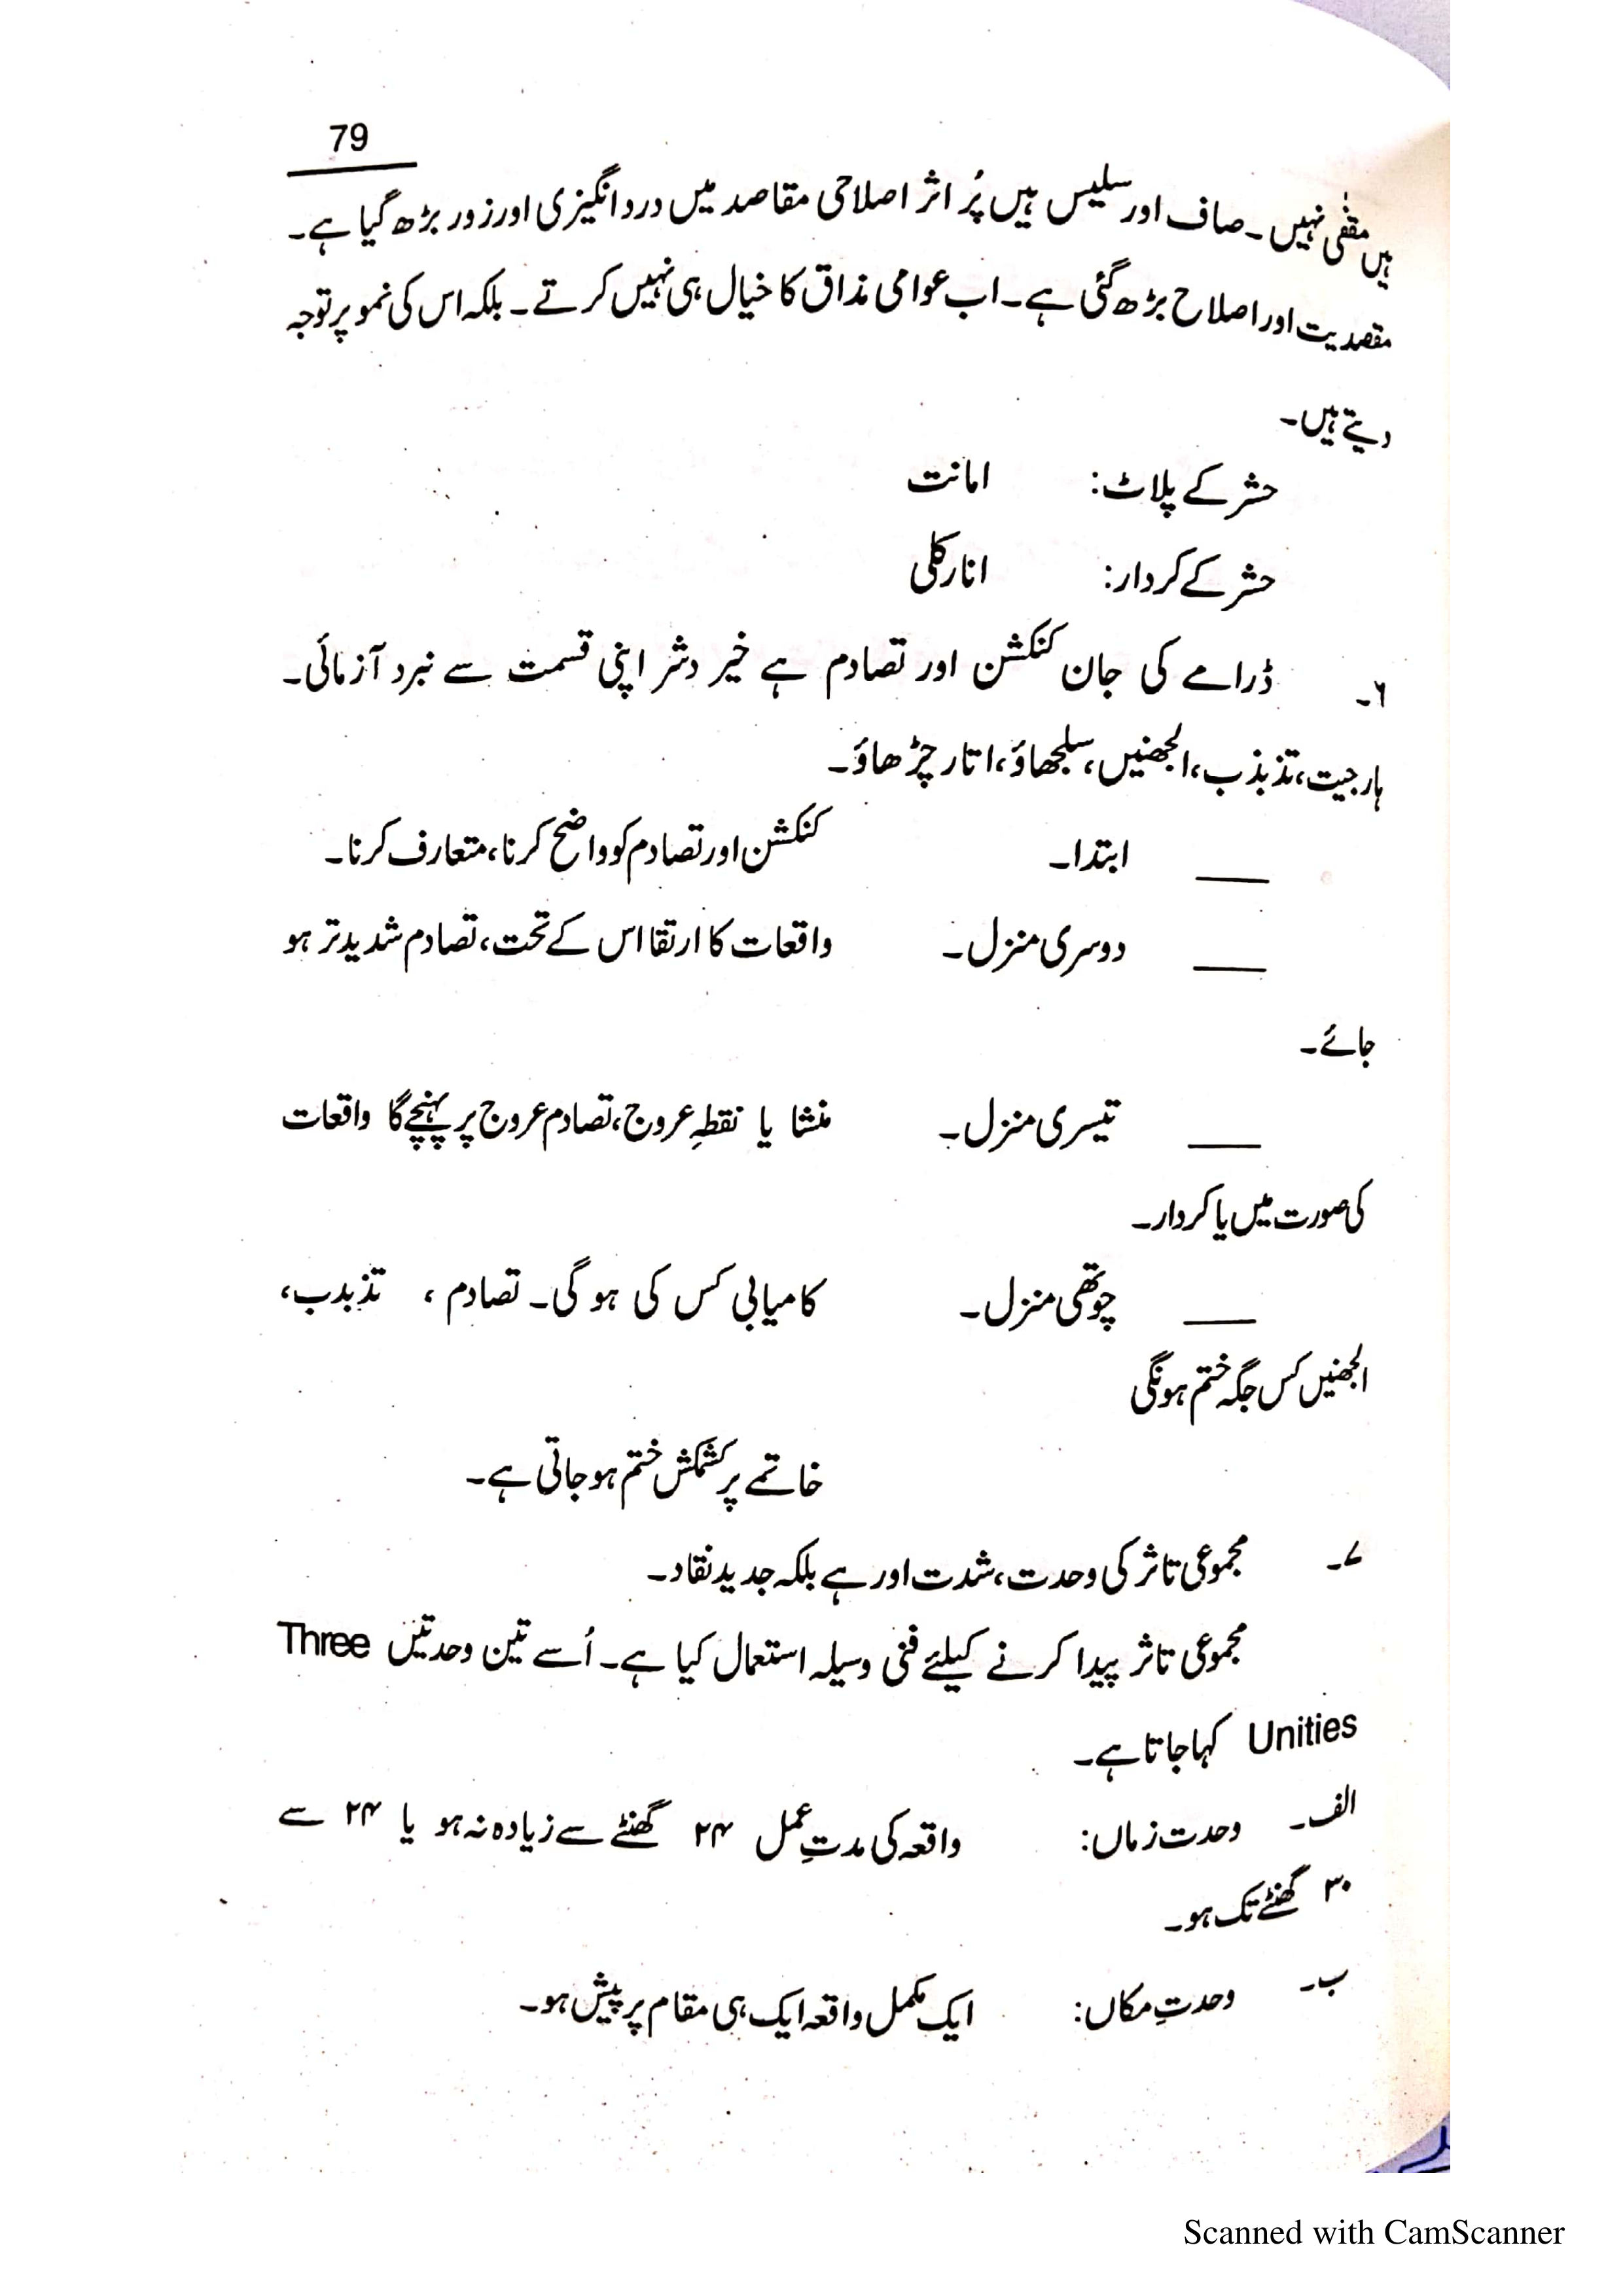 79
ہیں مقفٰی نہیں۔ صاف اور سلیس ہیں پُر اثر اصلاحی مقاصد میں درد انگیزی اور زور بڑھ گیا ہے۔
مقصدیت اور اصلاح بڑھ گئی ہے۔ اب عوامی مذاق کا خیال ہی نہیں کرتے۔ بلکہ اس کی نمو پر توجہ
دیتے ہیں۔
حشر کے پلاٹ: امانت
حشر کے کردار: انارکلی
۶۔ ڈرامے کی جان کنکشن اور تصادم ہے خیر دشر اپنی قسمت سے نبرد آزمائی۔
ہار جیت، تذبذب، الجھنیں، سلجھاؤ، اتار چڑھاؤ۔
___ ابتدا۔ کنکشن اور تصادم کو واضح کرنا، متعارف کرنا۔
___ دوسری منزل۔ واقعات کا ارتقا اس کے تحت، تصادم شدید تر ہو
جائے۔
___ تیسری منزل۔ منشا یا نقطۂِ عروج، تصادم عروج پر پہنچے گا واقعات
کی صورت میں یا کردار۔
___ چوتھی منزل۔ کامیابی کس کی ہو گی۔ تصادم ، تذبدب،
الجھنیں کس جگہ ختم ہونگی
خاتمے پر کشمکش ختم ہو جاتی ہے۔
۷۔ مجموعی تاثر کی وحدت، شدت اور ہے بلکہ جدید نقاد۔
مجموعی تاثر پیدا کرنے کیلئے فنی وسیلہ استعمال کیا ہے۔ اُسے تین وحدتیں Three
Unities کہا جاتا ہے۔
الف۔ وحدت زماں: واقعہ کی مدتِ عمل ۲۴ گھنٹے سے زیادہ نہ ہو یا ۲۴ سے
۳۰ گھنٹے تک ہو۔
ب۔ وحدتِ مکاں: ایک مکمل واقعہ ایک ہی مقام پر پیش ہو۔
Scanned with CamScanner